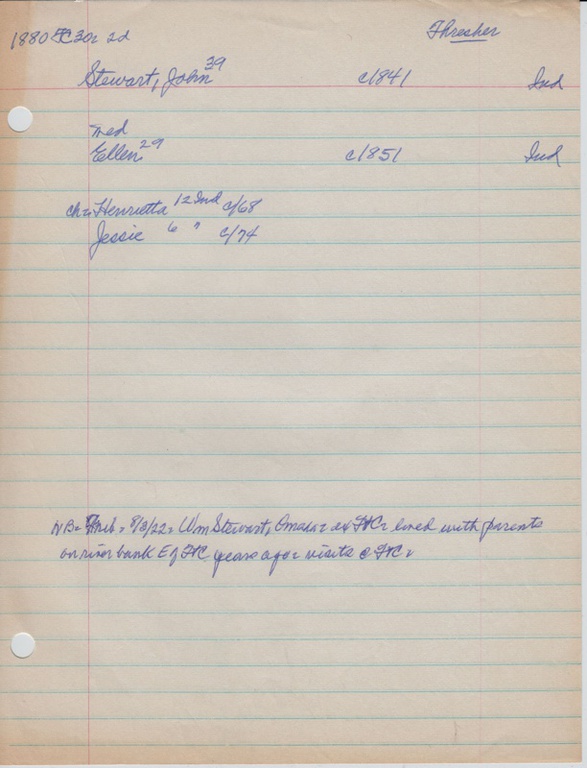 1880 FC 30= 2d Thresher
Stewart, John 39 c/1841 Ind
med
Ellen 29 c/1851 Ind
ch= Henrietta 12 Ind c/68
Jessie 6 " c/74
NB= Trib = 8/3/22= Wm Stewart, Omaha= ex FtC= lived with parents
on river bank E of FtC years ago= visits @ FtC=